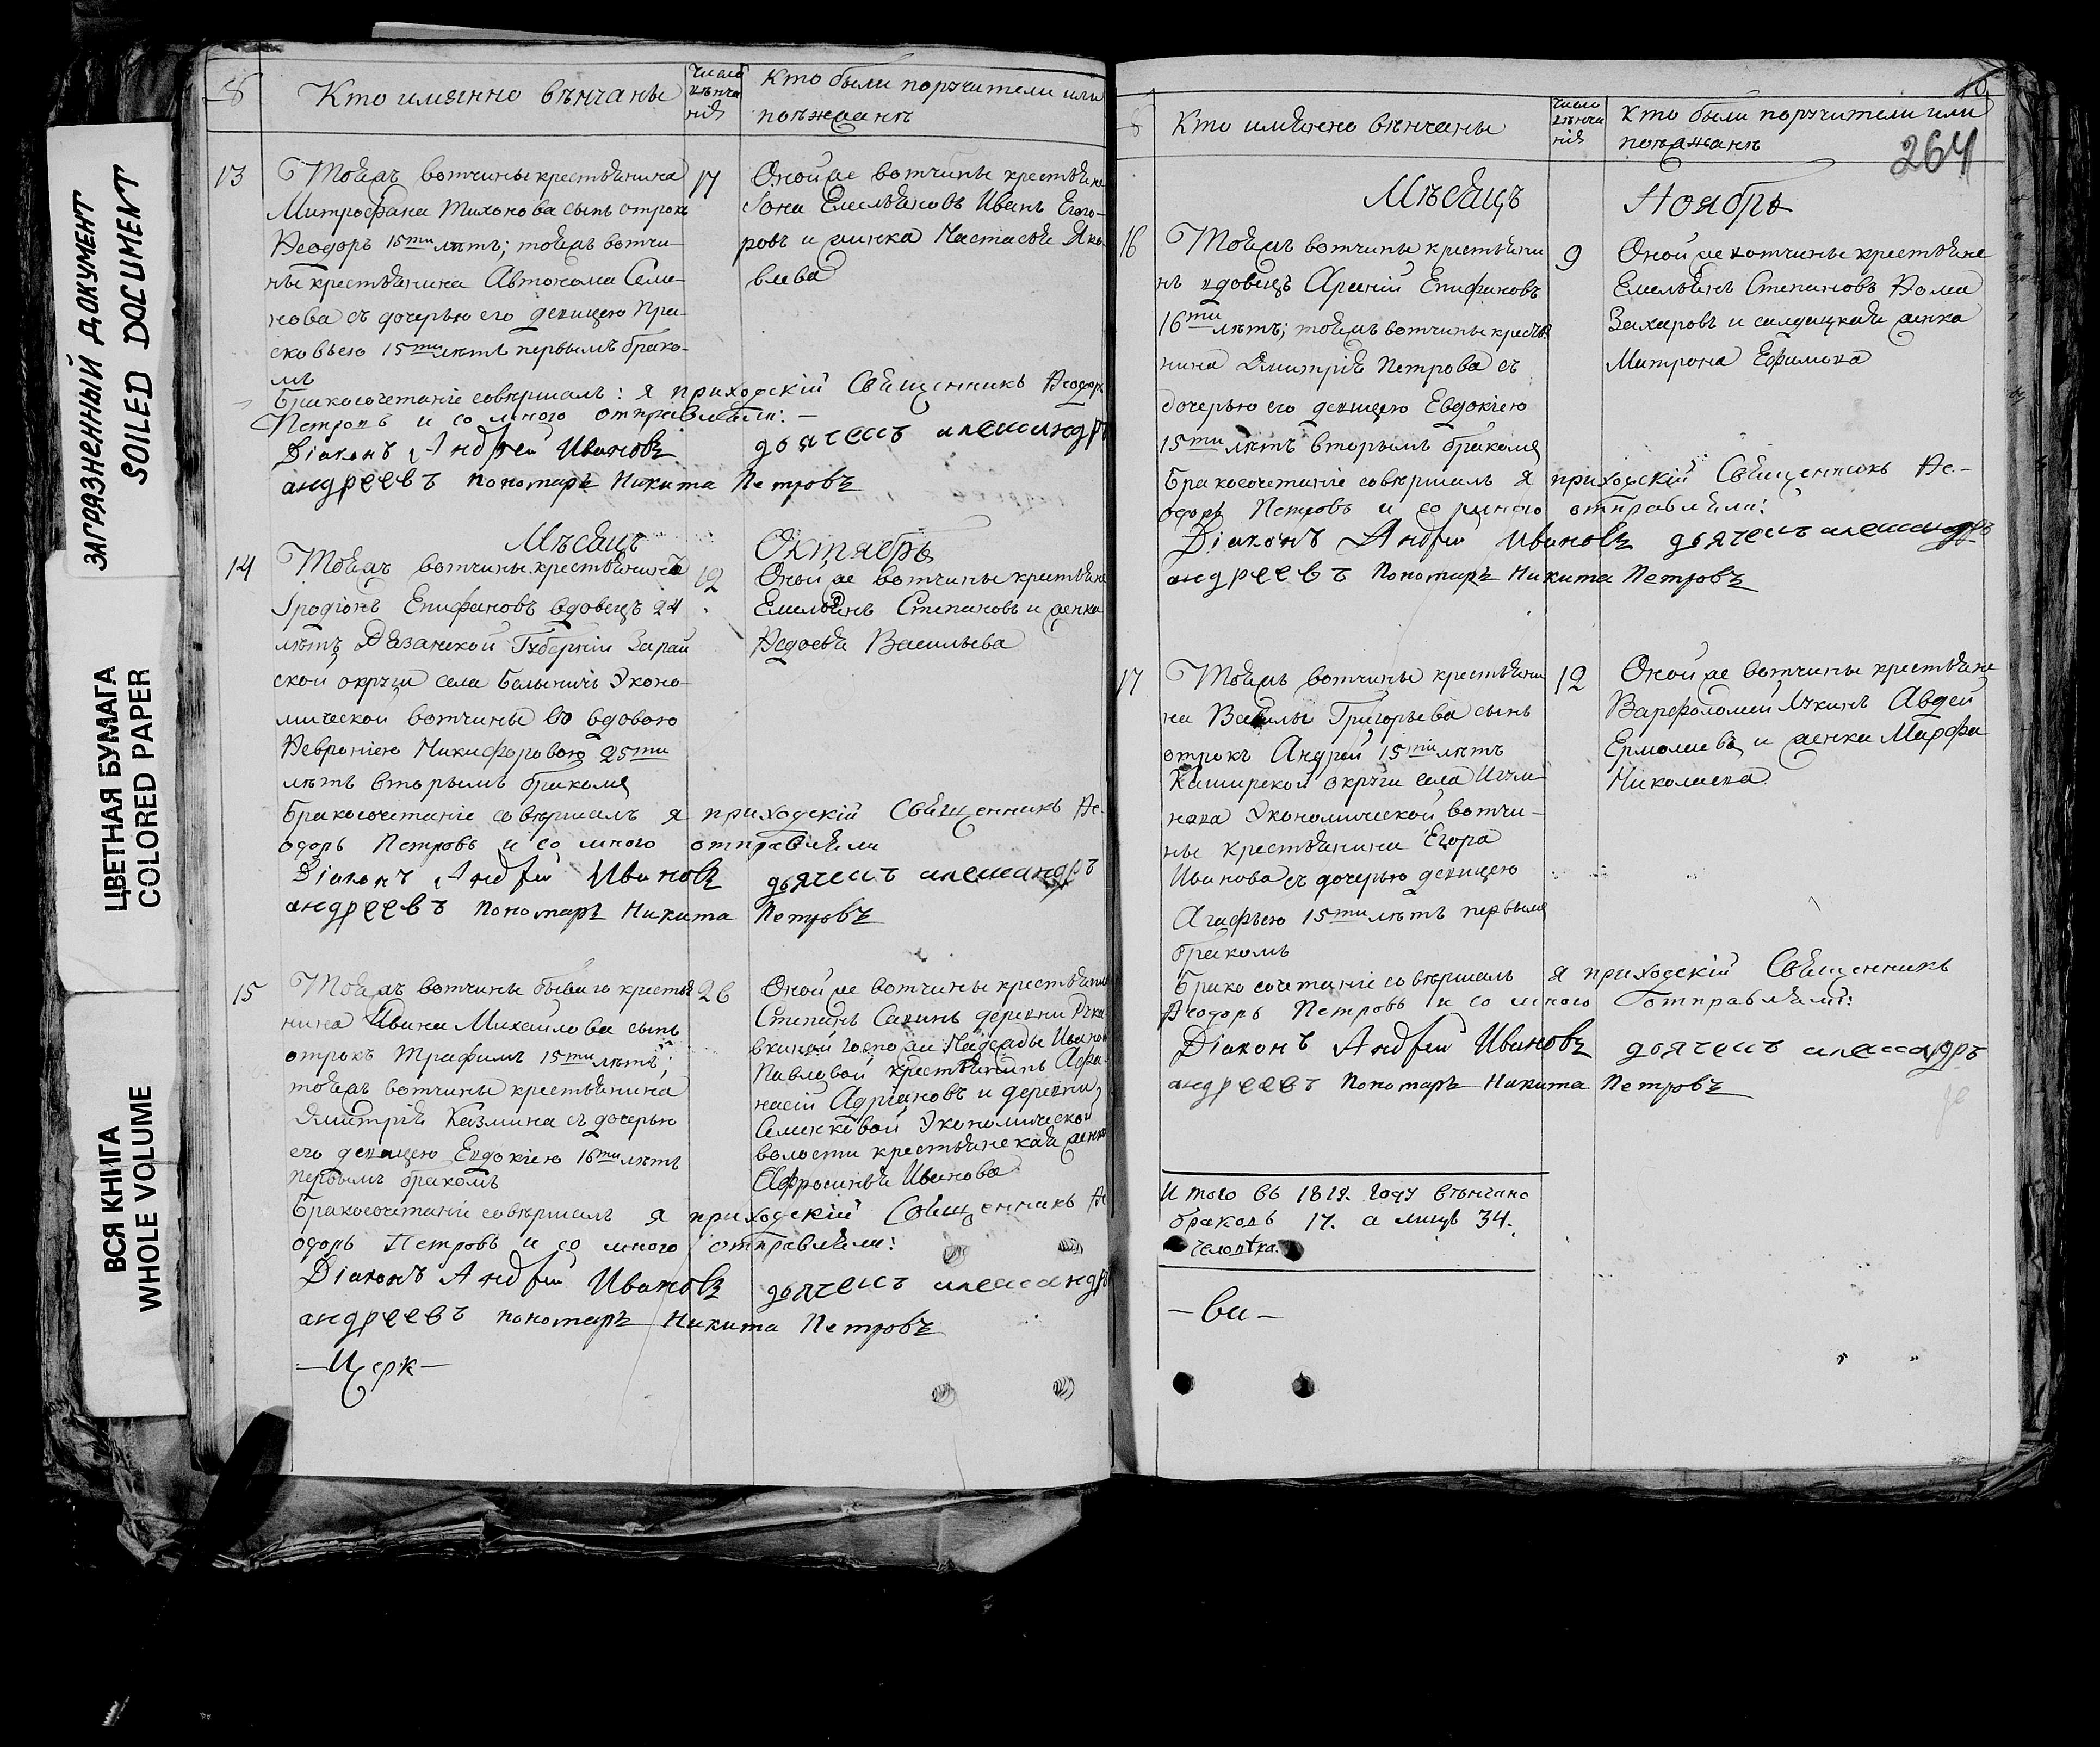 ЗАГРЯЗНЕННЫЙ ДОКУМЕНТ
SOILED DOCUMENT
ЦВЕТНАЯ БУМАГА
COLORED PAPER
ВСЯ КНИГА
WHOLE VOLUME
Кто имянно вѣнчаны
число вѣнча нія
Кто были поручители или
поѣжданѣ
13
Тояжъ вотчины крестьянина
Митрофана Тихонова сынъ отрокъ
Ѳеодоръ 15ти лѣтъ; тояжъ вотчи-
ны крестьянина Автонома Семе-
нова съ дочерью его девицею Пра-
сковьею 15ти лѣтъ первымъ брако-
мъ
17
Оной же вотчины крестьяне
Іона Емельяновъ Иванъ Его-
ровъ и жинка Настасья Яко
влева
Бракосочетаніе совершалъ: я приходскій Священникъ Ѳеодоръ
Петровъ и со мною отправляли: —
Діаконъ Андрей Ивановъ дьячекъ александръ
андреевъ пономарь Никита Петровъ
Мѣсяцъ Октябрь
14
Тояжъ вотчины крестьянинъ
Іродіонъ Епифановъ вдовецъ 24
лѣтъ Рязанской Губерніи Зарай
ской округи села Балыничь Эконо-
мической вотчины со вдовою
Ѳевроніею Никифоровою 25ти
лѣтъ вторымъ бракомъ
12
Оной же вотчины крестьяне
Емельянъ Степановъ и женка
Ѳедосья Васильева
Бракосочетаніе совершалъ я приходскій Священникъ Ѳе-
одоръ Петровъ и со мною отправляли
Діаконъ Андрей Ивановъ дьячекъ александръ
андреевъ пономарь Никита Петровъ
15
Тояжъ вотчины бываго крестья
нина Ивана Михайлова сынъ
отрокъ Трафимъ 15ти лѣтъ;
тояжъ вотчины крестьянина
Дмитрія Казмина съ дочерью
его девицею Евдокіею 16ти лѣтъ
первымъ бракомъ
26
Оной же вотчины крестьянинъ
Степанъ Савинъ деревни
госпожи Надежды Иванов
Павловой крестьянинъ Афа-
насій Адріановъ и деревни
Экономической
волости крестьянская женка
Афросинья Иванова
Бракосочетаніе совершалъ я приходскій Священникъ Ѳе
одоръ Петровъ и со мною отправляли:
Діаконъ Андрей Ивановъ дьячекъ александръ
андреевъ пономарь Никита Петровъ
—Церк—
264
Кто имянно вѣнчаны
число вѣнча нія
Кто были поручители или
поѣзжанѣ
Мѣсяцъ Ноябрь
16
Тояжъ вотчины крестьяни
нъ вдовецъ Арсеній Епифановъ
16ти лѣтъ; тояжъ вотчины крестья
нина Дмитрія Петрова съ
дочерью его девицею Евдокіею
15ти лѣтъ вторымъ бракомъ
9
Оной же вотчины крестьяне
Емельянъ Степановъ Ѳома
Захаровъ и салдацкая женка
Матрона Ефимова
Бракосочетаніе совершалъ я приходскій Священникъ Ѳе-
одоръ Петровъ и со мною отправляли:
Діаконъ Андрей Ивановъ дьячекъ александръ
андреевъ пономарь Никита Петровъ
17
Тояжъ вотчины крестьяни
на Василья Григорьева сынъ
отрокъ Андрей 15ти лѣтъ
Каширской округи села
Экономической вотчи-
ны крестьянина Егора
Иванова съ дочерью девицею
Агафьею 15ти лѣтъ первымъ
бракомъ
12
Оной же вотчины крестьяне
Варфоломей Лукинъ Авдей
Ермолаевъ и женка Марфа
Николаева
Бракосочетаніе совершалъ я приходскій Священникъ
Ѳеодоръ Петровъ и со мною отправляли:
Діаконъ Андрей Ивановъ дьячекъ александръ
андреевъ пономарь Никита Петровъ
Итого въ году вѣнчано
браковъ 17. а лицъ 34.
человѣка.
—ви—